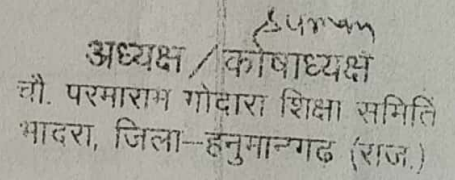 अध्यक्ष / कोषाध्यक्ष
चौ. परमाराम गोदारा शिक्षा समिति
भादरा, जिला-हनुमानगढ (राज.)